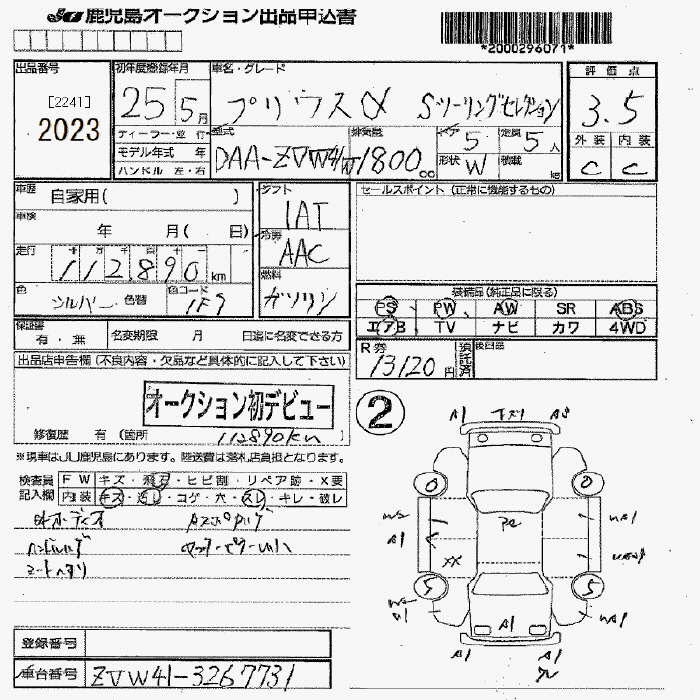 JU 鹿児島オークション出品申込書
*2000296071*
出品番号
[2241]
2023
初年度登録年月
25 5月
車名・グレード
プリウスα Sツーリングセレクション
評価点
3.5
外装 内装
C C
ディーラー・並行
モデル年式 年
ハンドル 左・右
型式
DAA-ZVW41W
排気量
1800cc
ドア 5
形状 W
定員 5人
積載 kg
車歴
自家用( )
車検
年 月( 日)
走行
十 万 千 百 十
112,890km
色
シルバー 色替
色コード
1F7
シフト
IAT
冷房
AAC
燃料
ガソリン
セールスポイント(正常に機能するもの)
装備品(純正品に限る)
PS PW AW SR ABS
エアB TV ナビ カワ 4WD
保証書
有・無
名変期限 月 日迄に名変できる方
R券
13120円
預託済
後日届
出品店申告欄(不良内容・欠品など具体的に記入して下さい)
オークション初デビュー
修復歴 有(箇所
112890km
※現車はJU鹿児島にあります。陸送費は落札店負担となります。
検査員記入欄
FW キズ・飛石・ヒビ割・リペア跡・X要
内装 キズ・汚レ・コゲ・穴・スレ・キレ・破レ
2
A1
A1
A1
A1
A1
A1
登録番号
車台番号 ZVW41-3267731